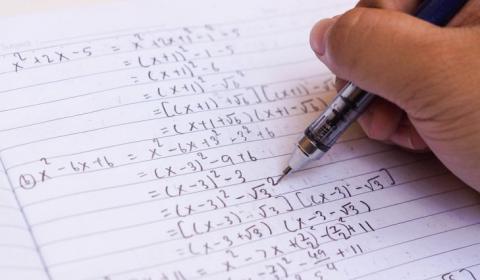 x² + 2x - 5 = x² + 2x + 1² - 1² - 5
= (x+1)² - 1 - 5
= (x+1)² - 6
= (x+1)² - √6²
= [(x+1) + √6][(x+1) - √6]
= (x+1+√6)(x+1-√6)
b) x² - 6x + 6 = x² - 6x + 3² - 3² + 6
= (x-3)² - 9 + 6
= (x-3)² - 3
= (x-3)² - √3²
= [(x-3) - √3][(x-3) - √3]
= (x-3+√3)(x-3-√3)
+ 11 = x² - 7x + (7/2)² - (7/2)² + 11
)² - 49/4 + 11